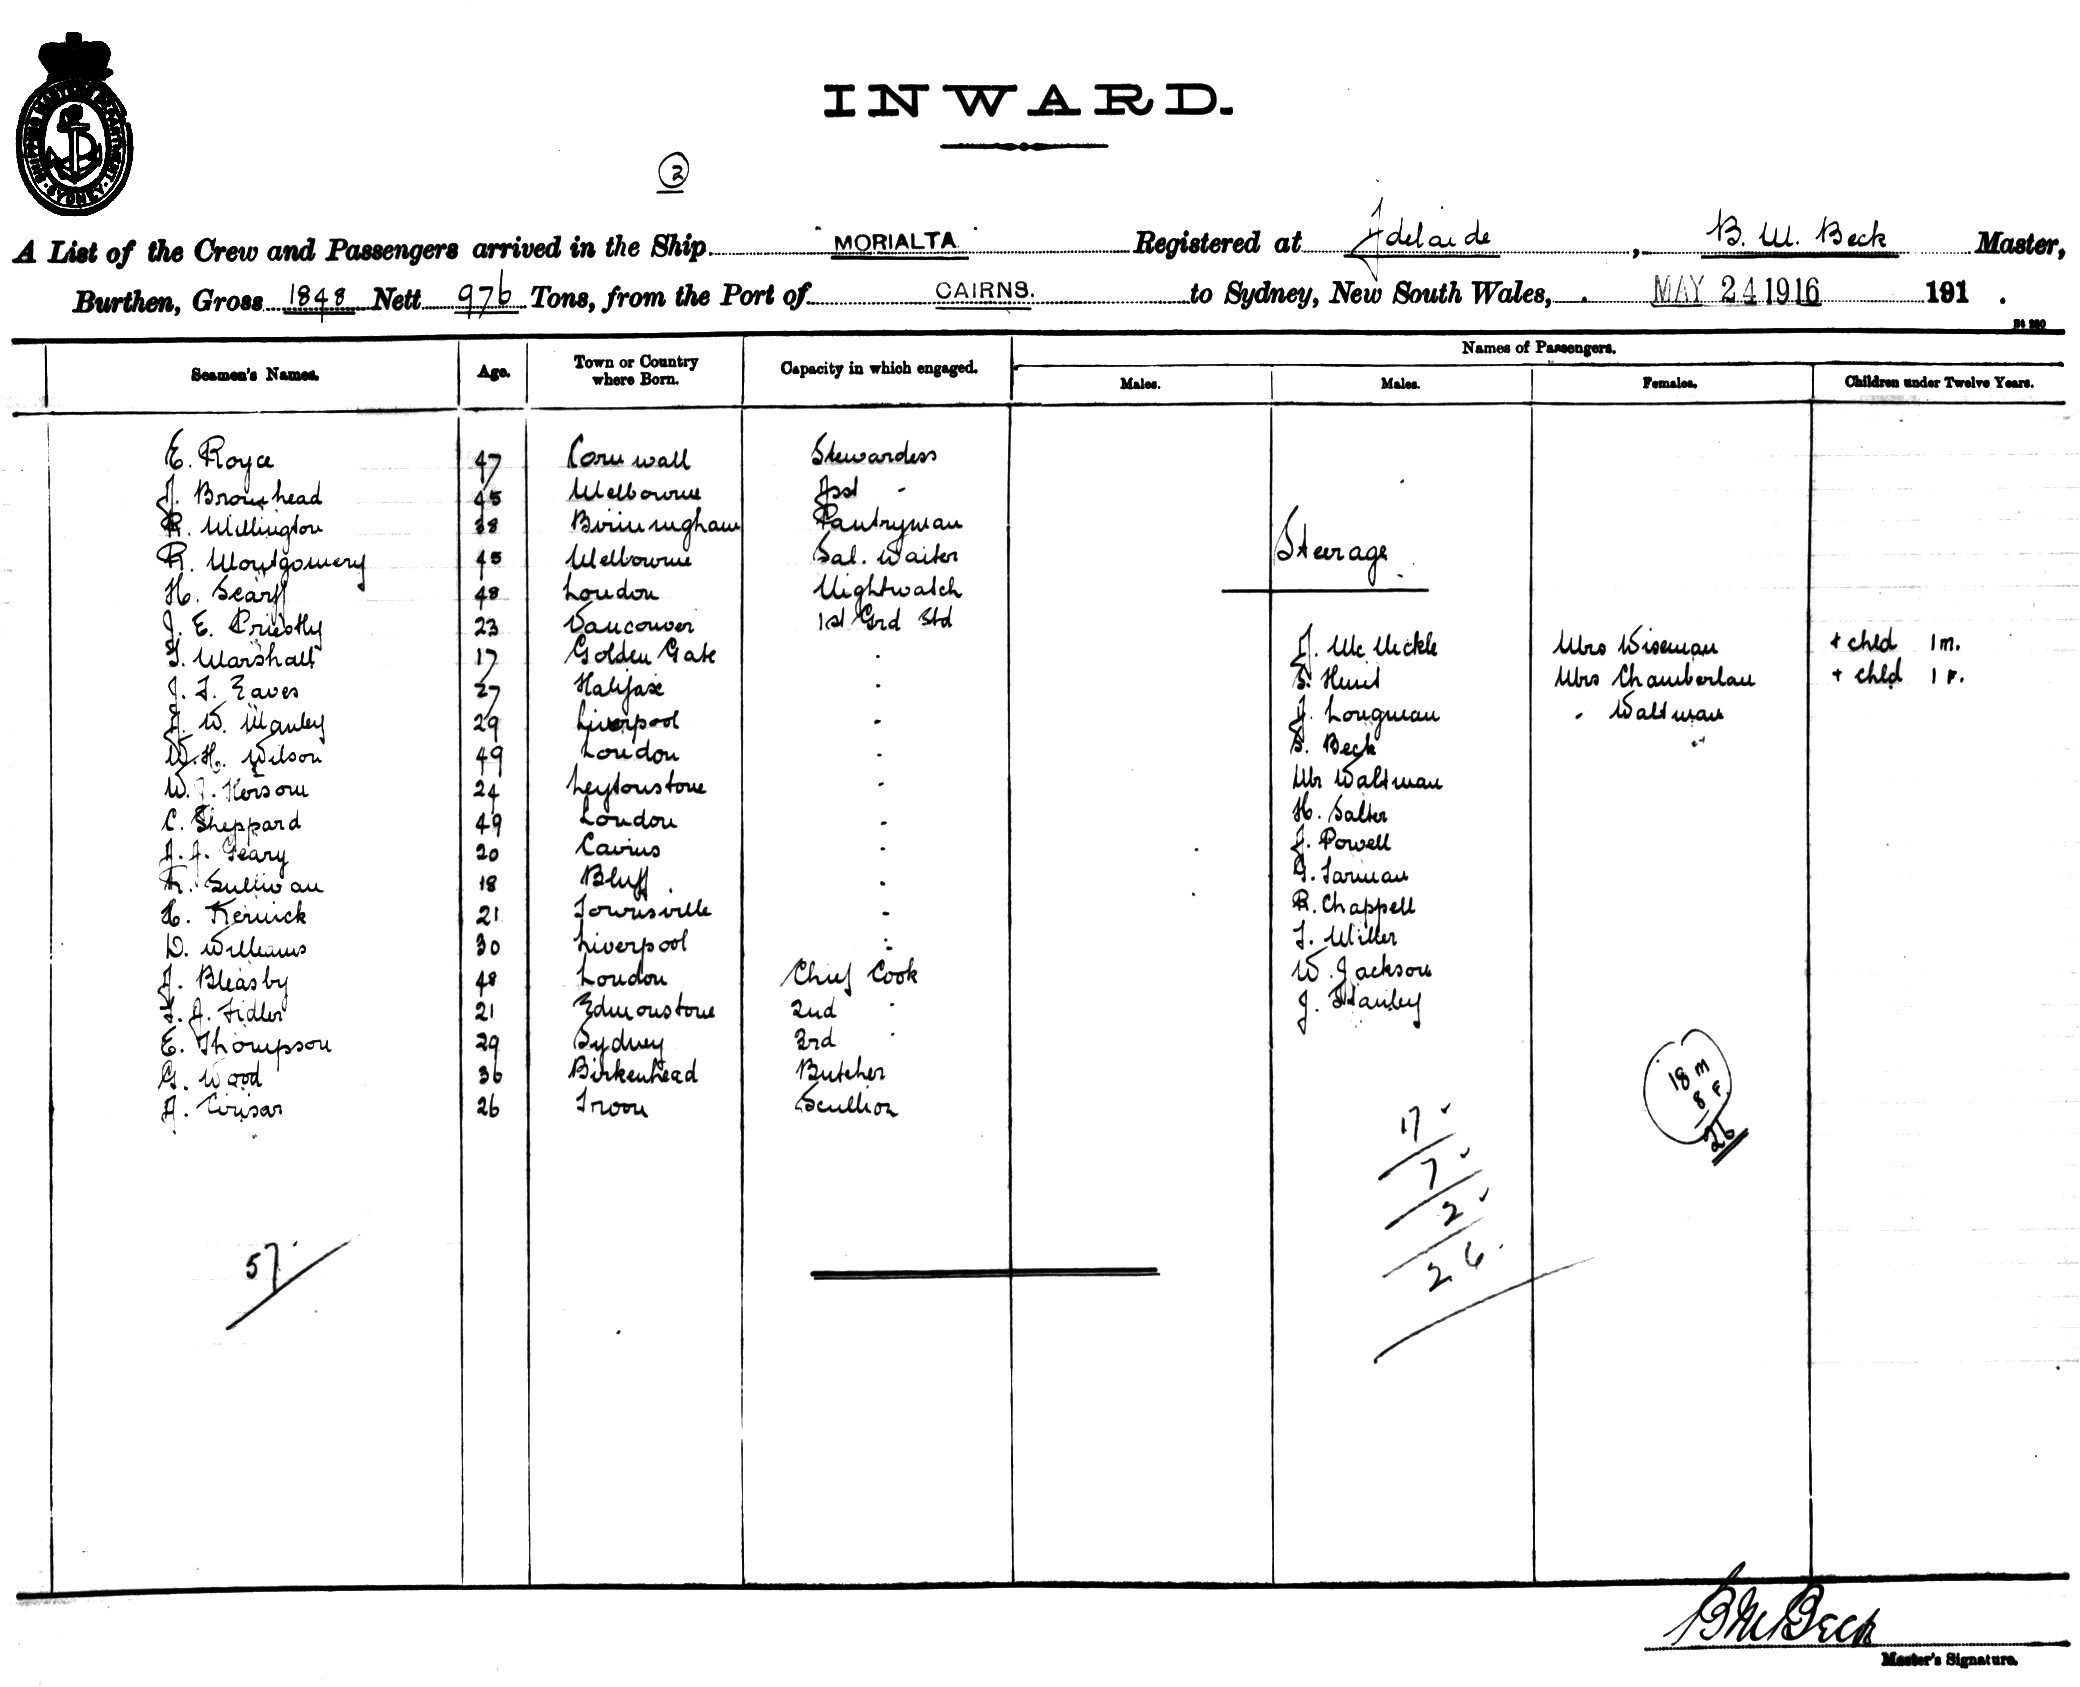 SHIPPING MASTER'S DEPARTMENT · SYDNEY ·
INWARD.
2
A List of the Crew and Passengers arrived in the Ship "MORIALTA" Registered at Adelaide, B. W. Beck Master,
Burthen, Gross 1848 Nett 976 Tons, from the Port of CAIRNS. to Sydney, New South Wales, MAY 24 1916 191 .
Names of Passengers.
Seamen's Names. Age. Town or Country where Born. Capacity in which engaged. Males. Males. Females. Children under Twelve Years.
E. Royce 47 Cornwall Stewardess
J. Bromhead 45 Melbourne Asst "
R. Millington 38 Birmingham Pantryman
R. Montgomery 45 Melbourne Sal. Waiter Steerage.
H. Scarff 48 London Nightwatch
J. E. Priestly 23 Vancouver 1st Grd Std
Marshall 17 Golden Gate " J. McMickle Mrs Wiseman + chld 1 m.
J. T. Eaves 27 Halifax " S. Hunt Mrs Chamberlau + chld 1 F.
W. Manley 29 Liverpool " J. Longman " Waltman
W. H. Wilson 49 London " S. Beck
W. J. Hersom 24 Leytonstone " Mr Waltman
C. Sheppard 49 London " H. Salter
A. J. Geary 20 Cairns " J. Powell
Sullivan 18 Bluff. " Farman
H. Kernick 21 Townsville " R. Chappell
D. Williams 30 Liverpool " T. Miller
J. Bleasby 48 London Chief Cook W. Jackson
A. Fidler 21 Edmonstone 2nd " J. Stanley
E. Thompson 29 Sydney 3rd "
G. Wood 36 Birkenhead Butcher 18 m
A. 26 Troon Scullion 8 F.
17 26
7
2
57 26
B W Beck
Master's Signature.